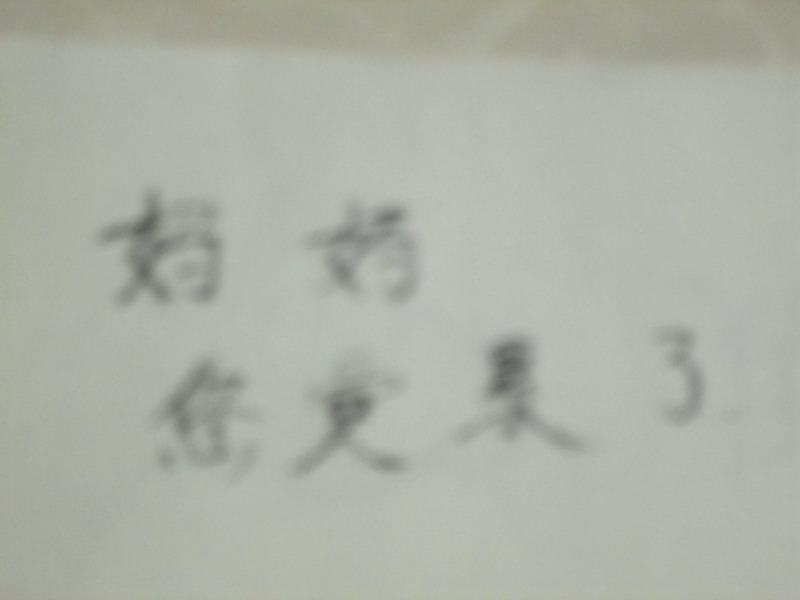 妈妈
您受累了